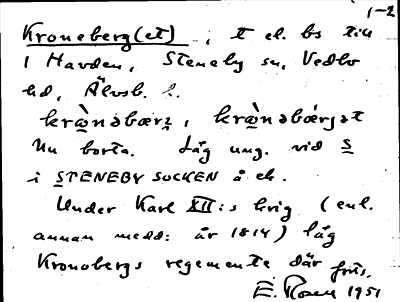 1-2
Kroneberg(et), t el. bs till
1 Havden, Steneby sn, Vedbo
hd, Älvsb. l.
krònəbærj, krònəbærjət
Nu borta. Låg ung. vid S
i STENEBY SOCKEN å ek.
Under Karl XII:s krig (enl.
annan medd: år 1814) låg
Kronobergs regemente där förl.
E. 1951